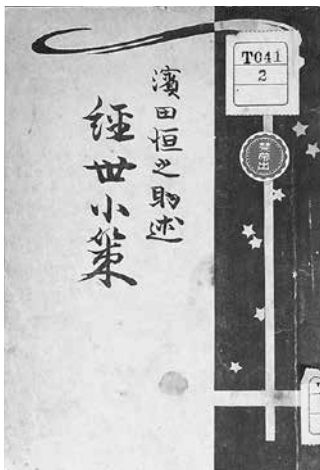 T041
2
禁帶出
濱田恒之助述
經世小策